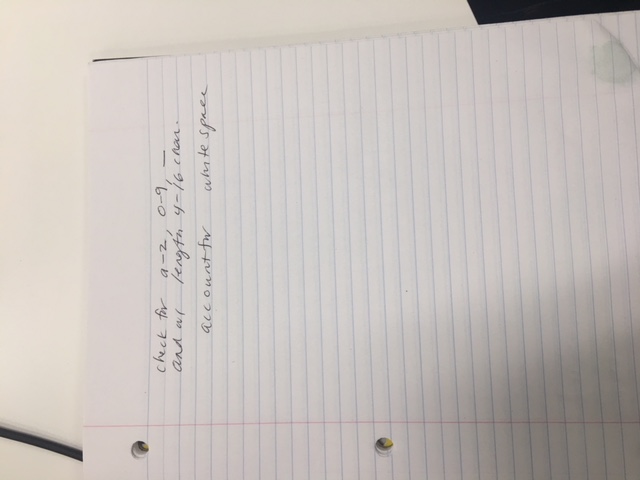 check for a-z, 0-9, _
and length 4-16 char.
account for white space